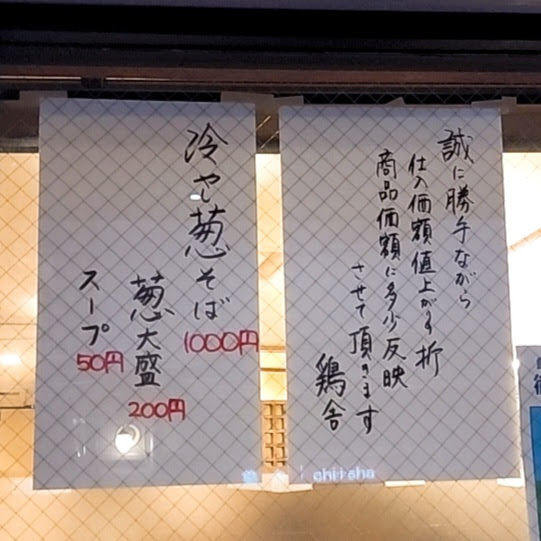 誠に勝手ながら
仕入価額値上がる折
商品価額に多少反映
させて頂きます
鶏舎
冷やし葱そば
1000円
葱大盛
200円
スープ
50円
chi-sha